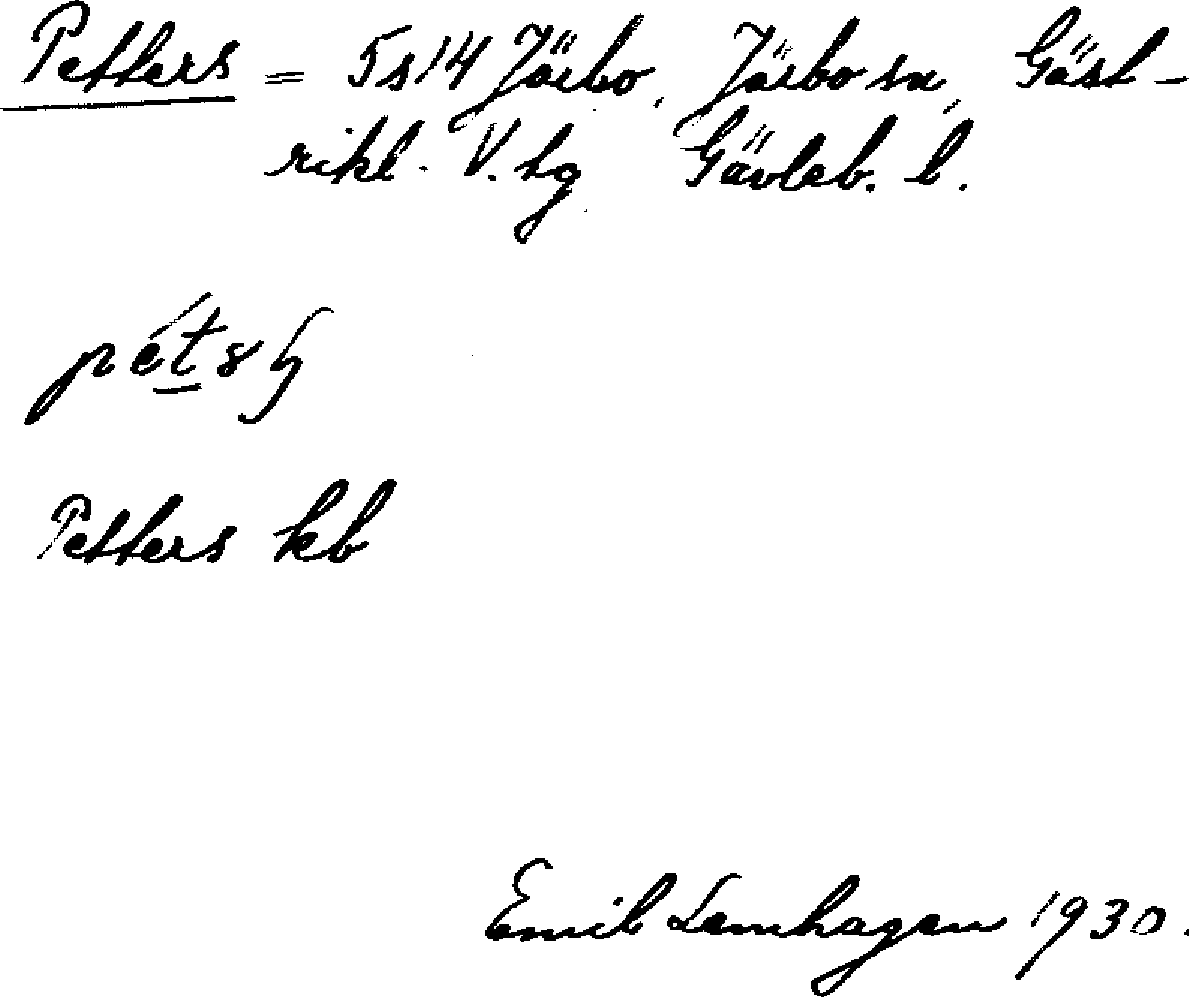 Petters = 5s14 Järbo, Järbo sn, Gäst-
rikl. V. tg Gävleb. l.
Petters kb
Emil Lemhagen 1930.